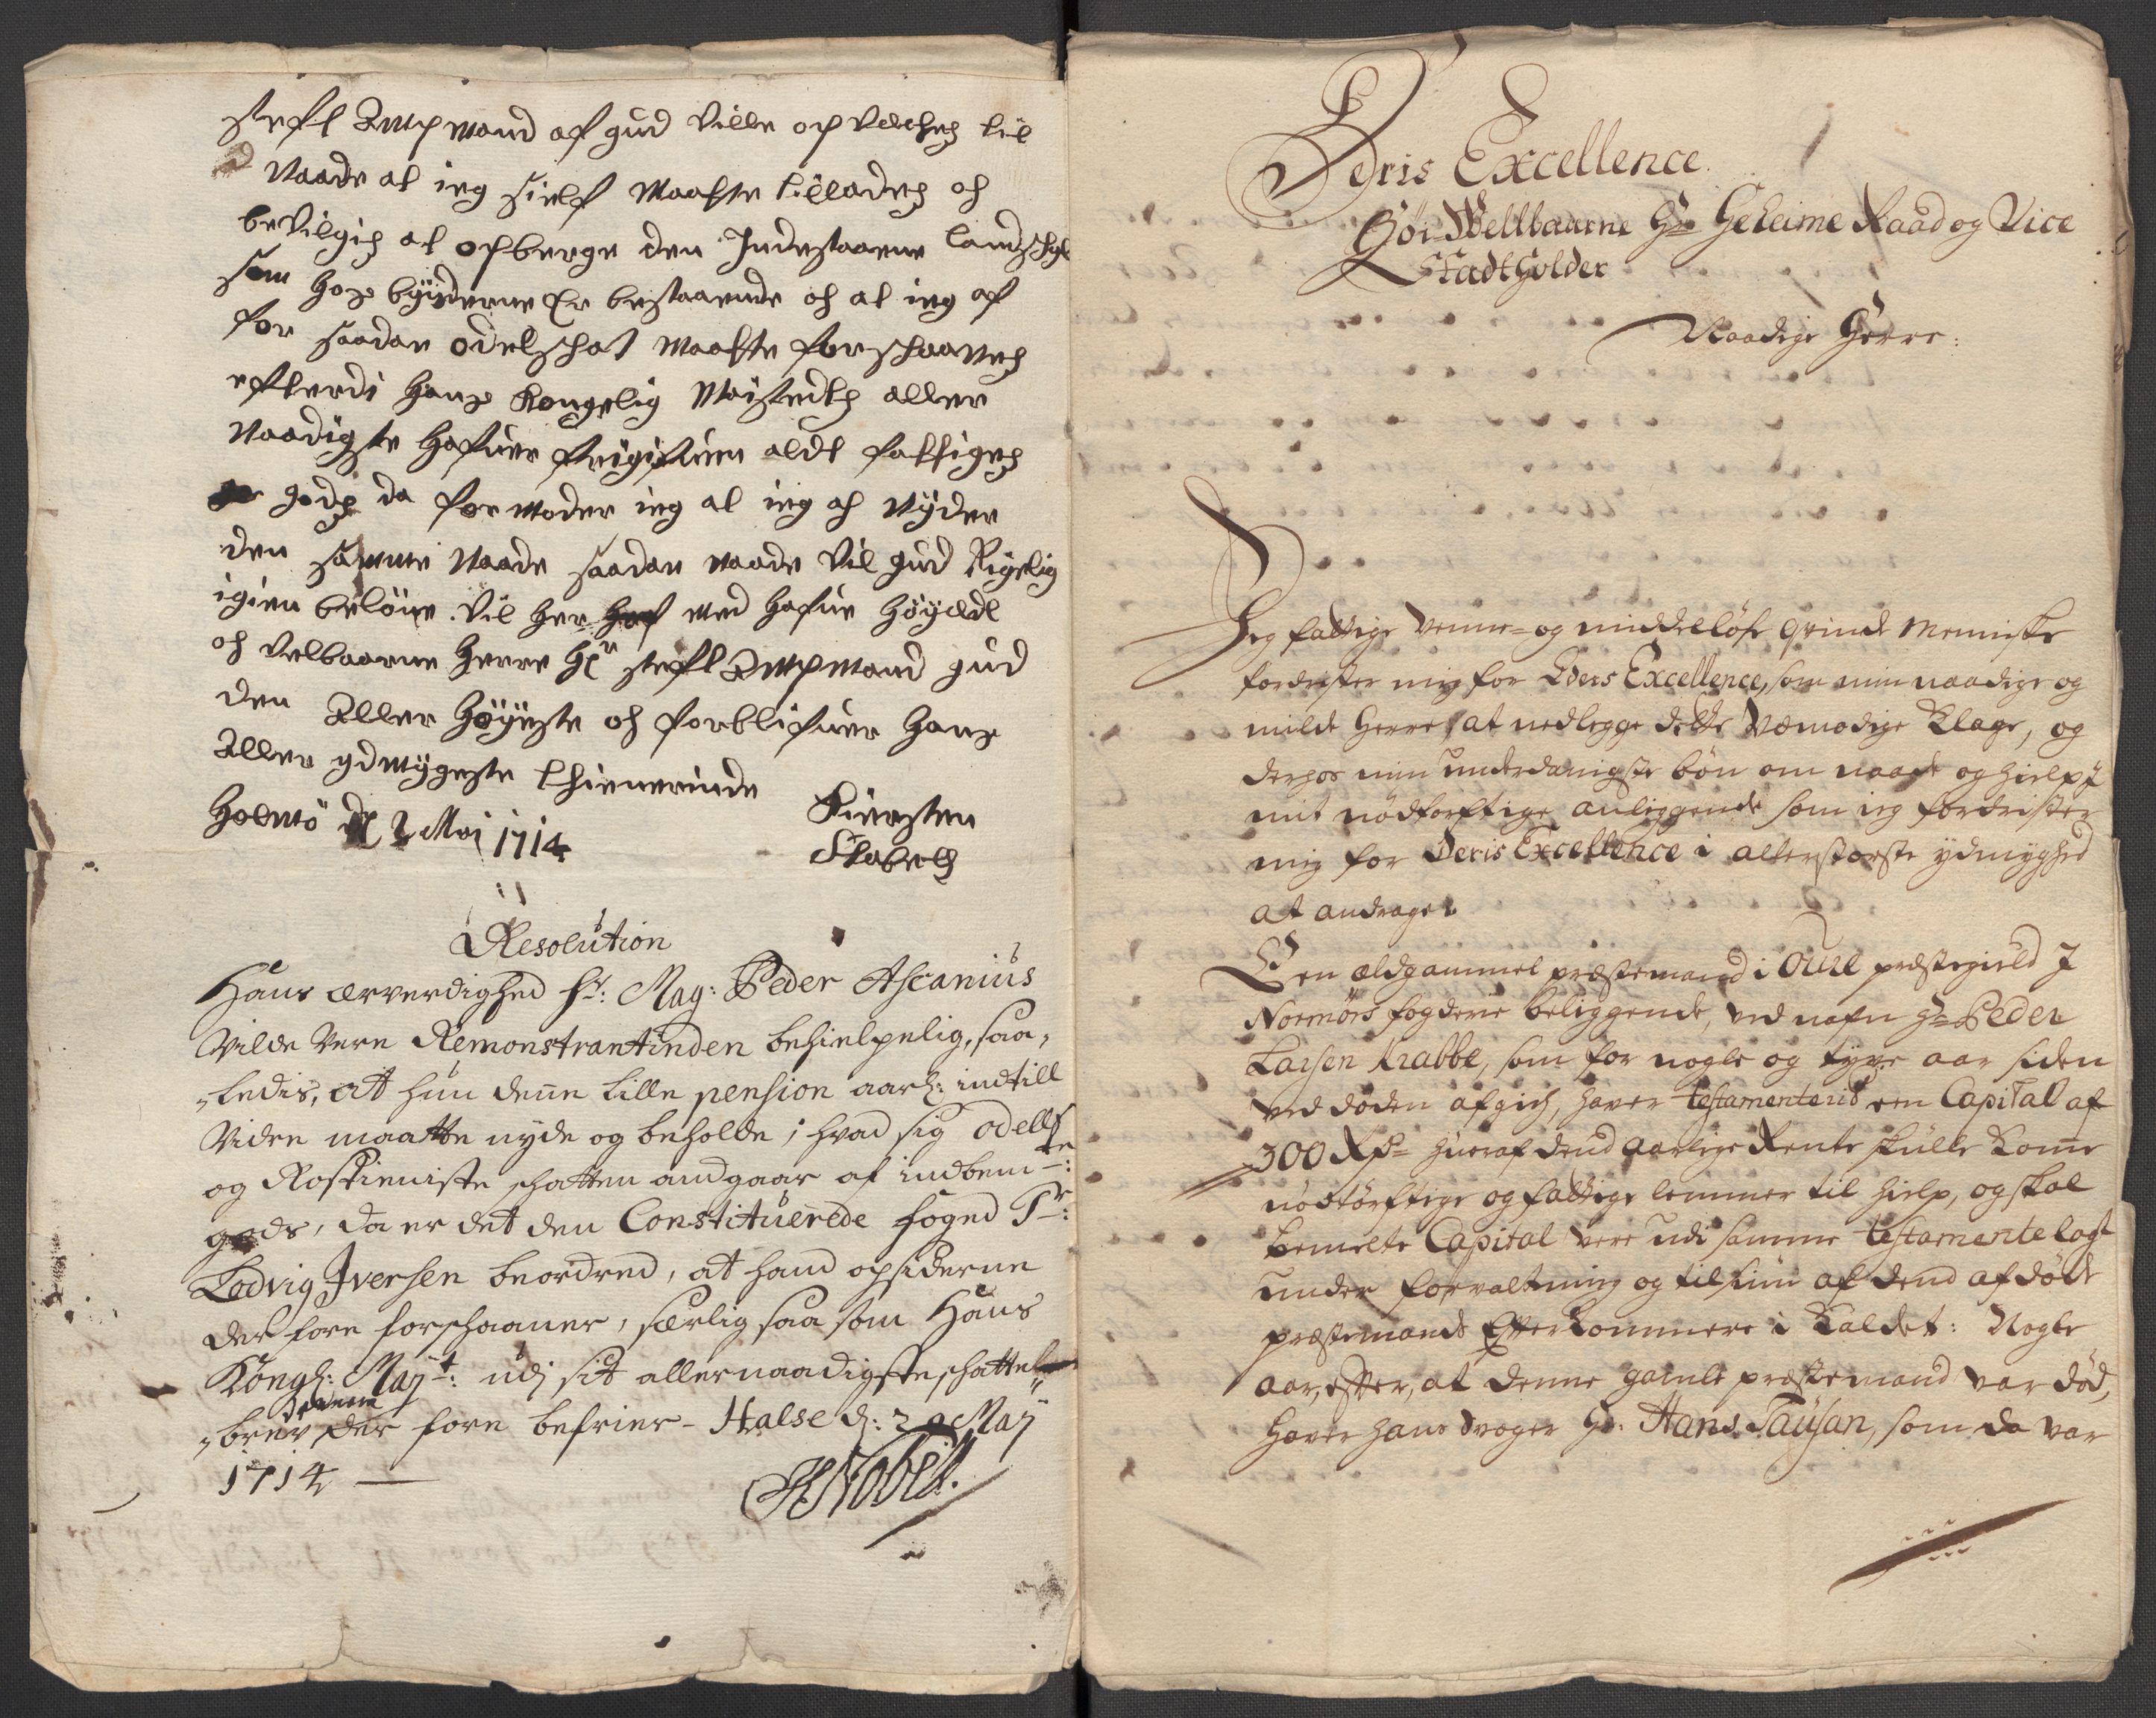 Stift Ampmand af gud ville opvæches til
Naade at ieg sielf Maatte tillades och
bevilgis at opberge den Indestaaene landschyl
som hoes byxderne Er bestaaende och at ieg af
for saadan odelschat Maatte forschaanes
efterdi hans kongelig Maistedts aller
Naadigste hafuer frigifuen aldt fattiges
godz da formoder ieg at ieg och nyder
den samme Naade saadan naade vil gud Rigelig
igien beløne. vil her med hafue høyædl
och velbaarne herre Hr Stift Ampmand gud
den Aller høyeste och forblifuer hans
Aller ydmygeste thienerinde
Holmø d 2 Maj 1714 Kiersten
Stabels
Resolution
Hans ærværdighed hr: Mag: Peder Ascanius
Vilde være Remonstrantinden behielpelig, saa-
-ledis, at hun denne lille pension aarl: indtill
Videre maatte nyde og beholde; hvad sig odells
og Rostieniste schatten andgaar af indbemte:
gods, da er det den Constituerede foged Sr:
Lodvig Iversen beordred, at hand opsiderne
der fore forschaaner, særlig saa som Hans
Kongl: Majt: udj sit allernaadigste schatte
-brev dennem der fore befrier - Halse d: 29 Maj
1714 —
HNobel.
Deris Excellence
Høi-Wellbaarne Hr Geheime Raad og Vice
Stadtholder
Naadige Herre:
Jeg fattige venne- og middelløse qvinde Menniske
fordrister mig for Ders Excellence, som min naadige og
milde Herre, at nedlegge dette vemodige Klage, og
derhos min underdanigste bøn om naade og hielp J
mit nødtorftige anliggende som ieg fordrister
mig for Deris Excellence i allerstørste ydmyghed
at andrage.
En ældgammel præstemand i Oure præstegield J
Normørs fogderie beliggende, ved nafn Hr Peder
Larsen Krabbe, som for nogle og tyve aar siden
ved døden afgich, haver testamenterid een Capital af
300 Rdr hvoraf dend aarlige Rente skulle komme
nødtørftige og fattige lemmer til hielp, og skal
bemelte Capital være udi samme testamente lagt
under forvaltning og tilsiun af dend afdøde
præstemands Efterkommere i Kaldet: Nogle
aar, efter, at denne gamle præstemand var død,
haver hans svoger Hr: Hans Tausan, som da var